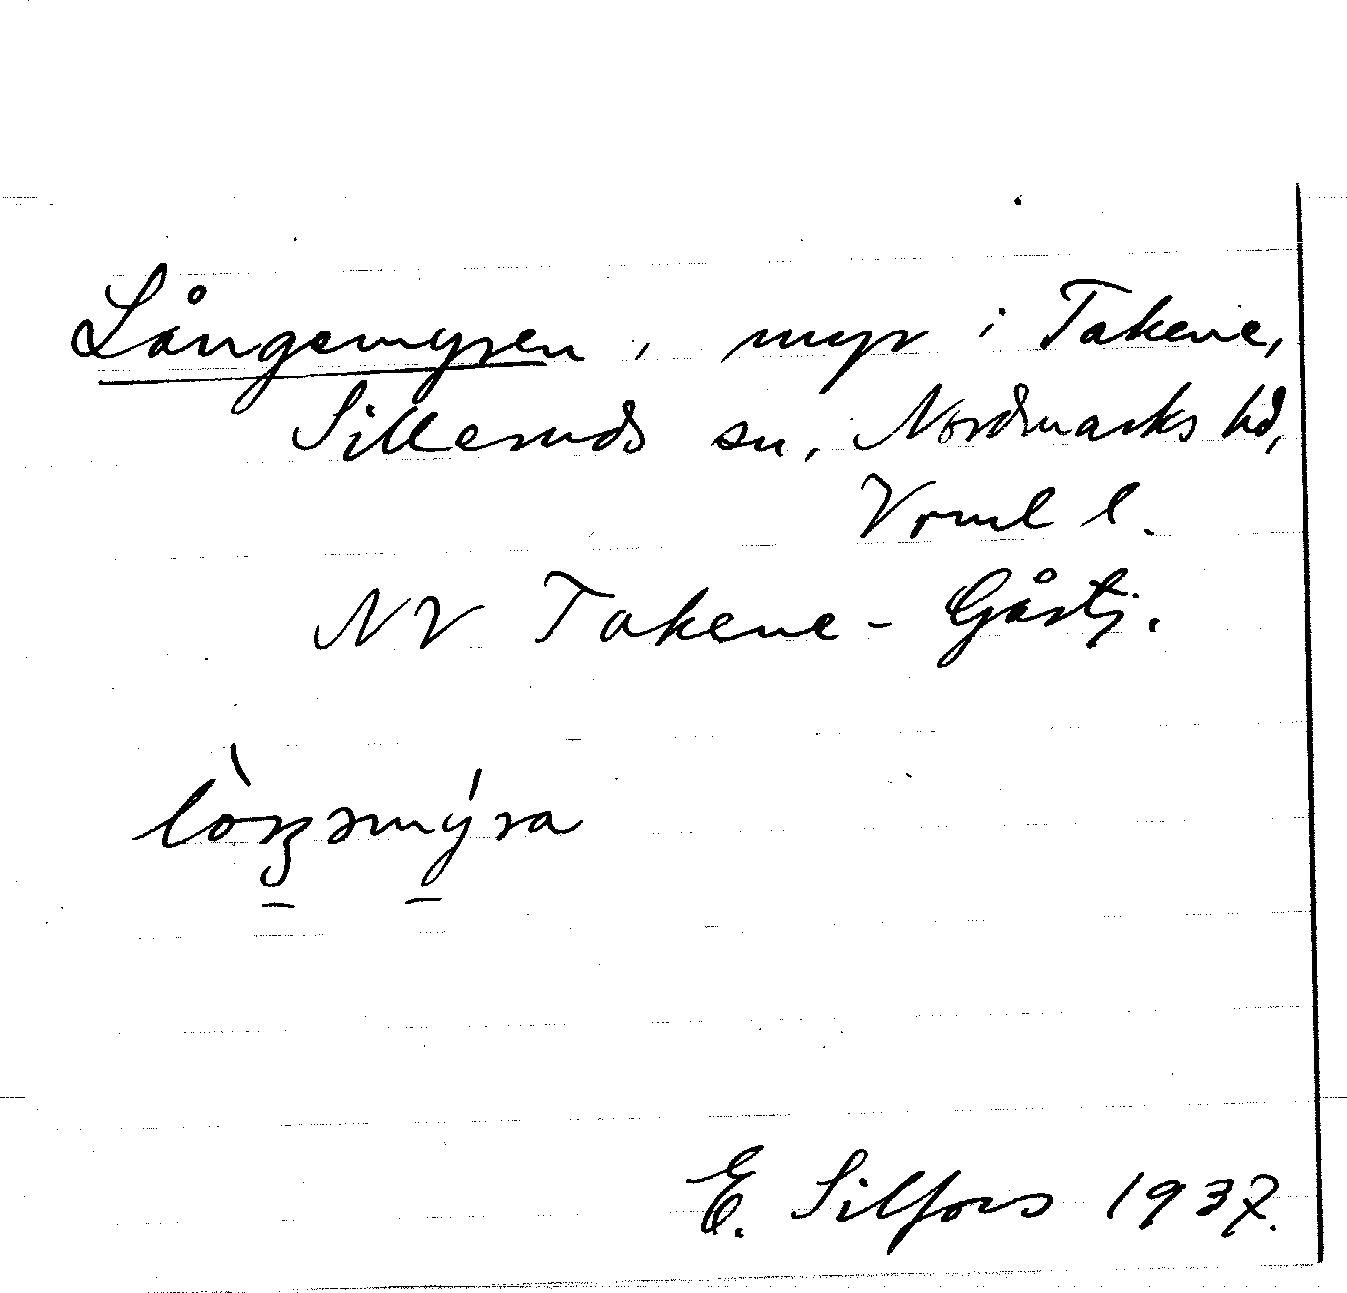 Långemyren, myr i Takene,
Silleruds sn, Nordmarks hd,
Vrml l.
NV Takene - Gåstj.
E. Silfors 1937.